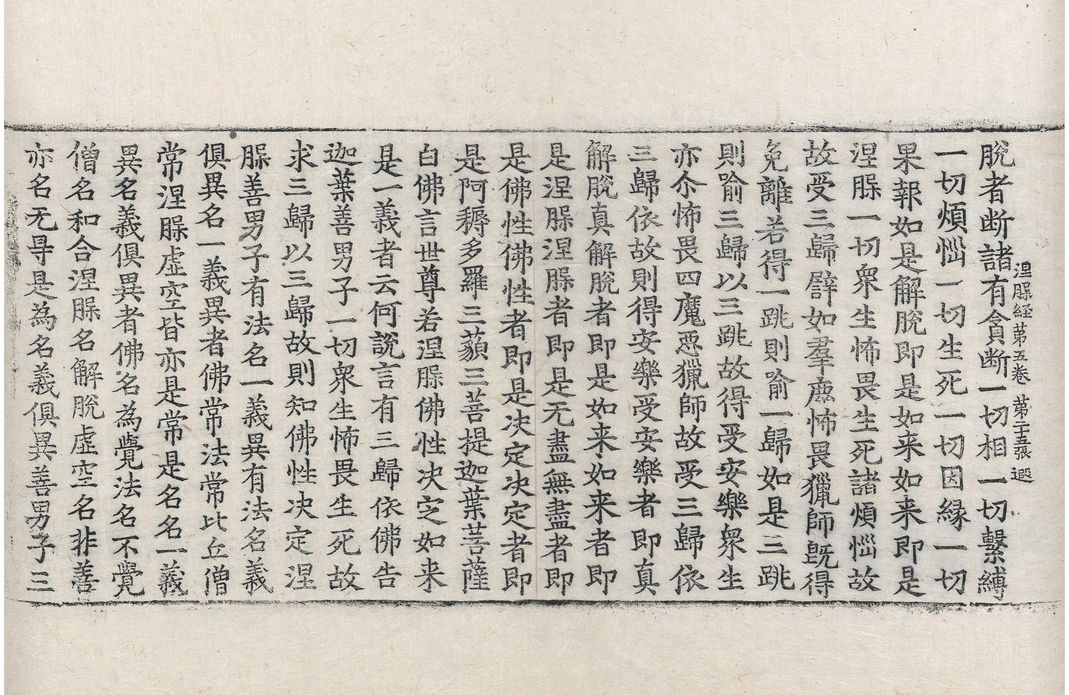 脫者断諸有貪断一切相一切繫縛
涅腺経第五卷 第二十五張 遐
一切煩惱一切生死一切因縁一切
果報如是解脫即是如来如来即是
涅腺一切衆生怖畏生死諸煩惱故
故受三歸譬如羣鹿怖畏獵師旣得
免離若得一跳則喻一歸如是三跳
則喻三歸以三跳故得受安樂衆生
亦尒怖畏四魔惡獵師故受三歸依
三歸依故則得安樂受安樂者即真
解脫真解脫者即是如来如来者即
是涅腺涅腺者即是无盡無盡者即
是佛性佛性者即是决定决定者即
是阿耨多羅三藐三菩提迦葉菩薩
白佛言世尊若涅腺佛性决定如来
是一義者云何說言有三歸依佛告
迦葉善男子一切衆生怖畏生死故
求三歸以三歸故則知佛性决定涅
腺善男子有法名一義異有法名義
俱異名一義異者佛常法常比丘僧
常涅腺虛空皆亦是常是名名一義
異名義俱異者佛名為覺法名不覺
僧名和合涅腺名解脫虛空名非善
亦名无㝵是為名義俱異善男子三